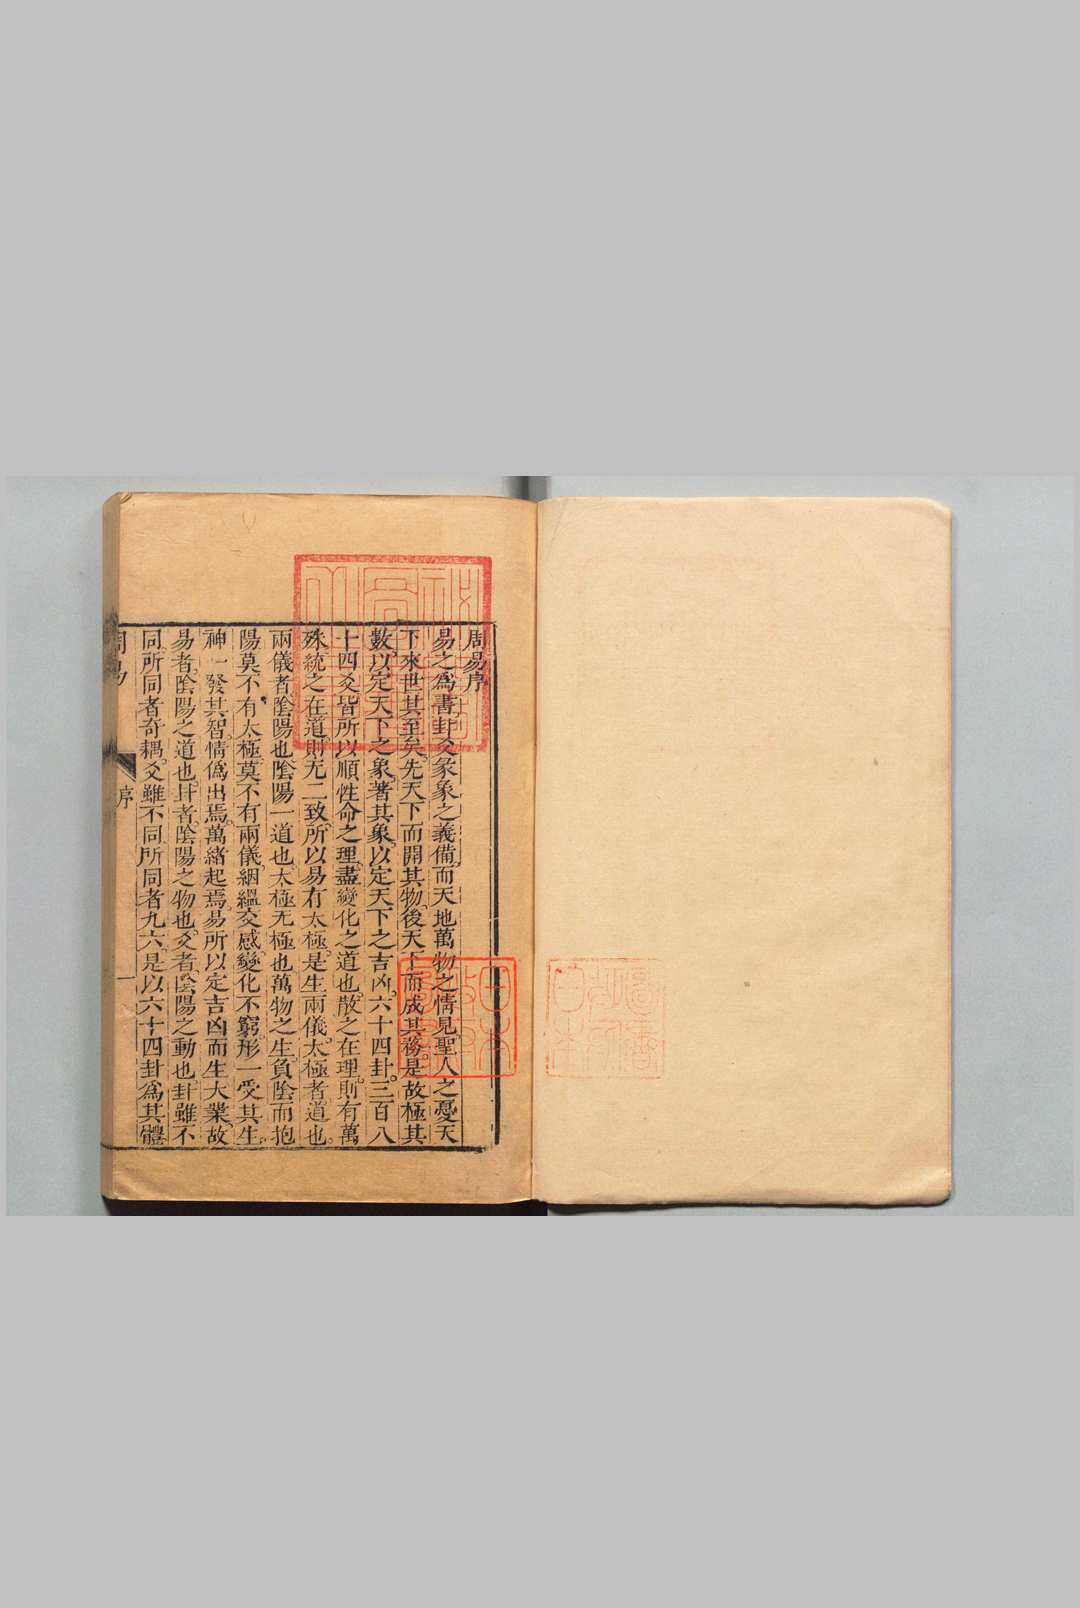 周易序
易之爲書卦爻彖象之義備而天地萬物之情見聖人之憂天
下來世其至矣先天下而開其物後天下而成其務是故極其
數以定天下之象著其象以定天下之吉凶六十四卦三百八
十四爻皆所以順性命之理盡變化之道也散之在理則有萬
殊統之在道則无二致所以易有太極是生兩儀太極者道也
兩儀者陰陽也陰陽一道也太極无極也萬物之生負陰而抱
陽莫不有太極莫不有兩儀絪縕交感變化不窮形一受其生
神一發其智情僞出焉萬緒起焉易所以定吉凶而生大業故
易者陰陽之道也卦者陰陽之物也爻者陰陽之動也卦雖不
同所同者奇耦爻雖不同所同者九六是以六十四卦爲其體
周易
序
一